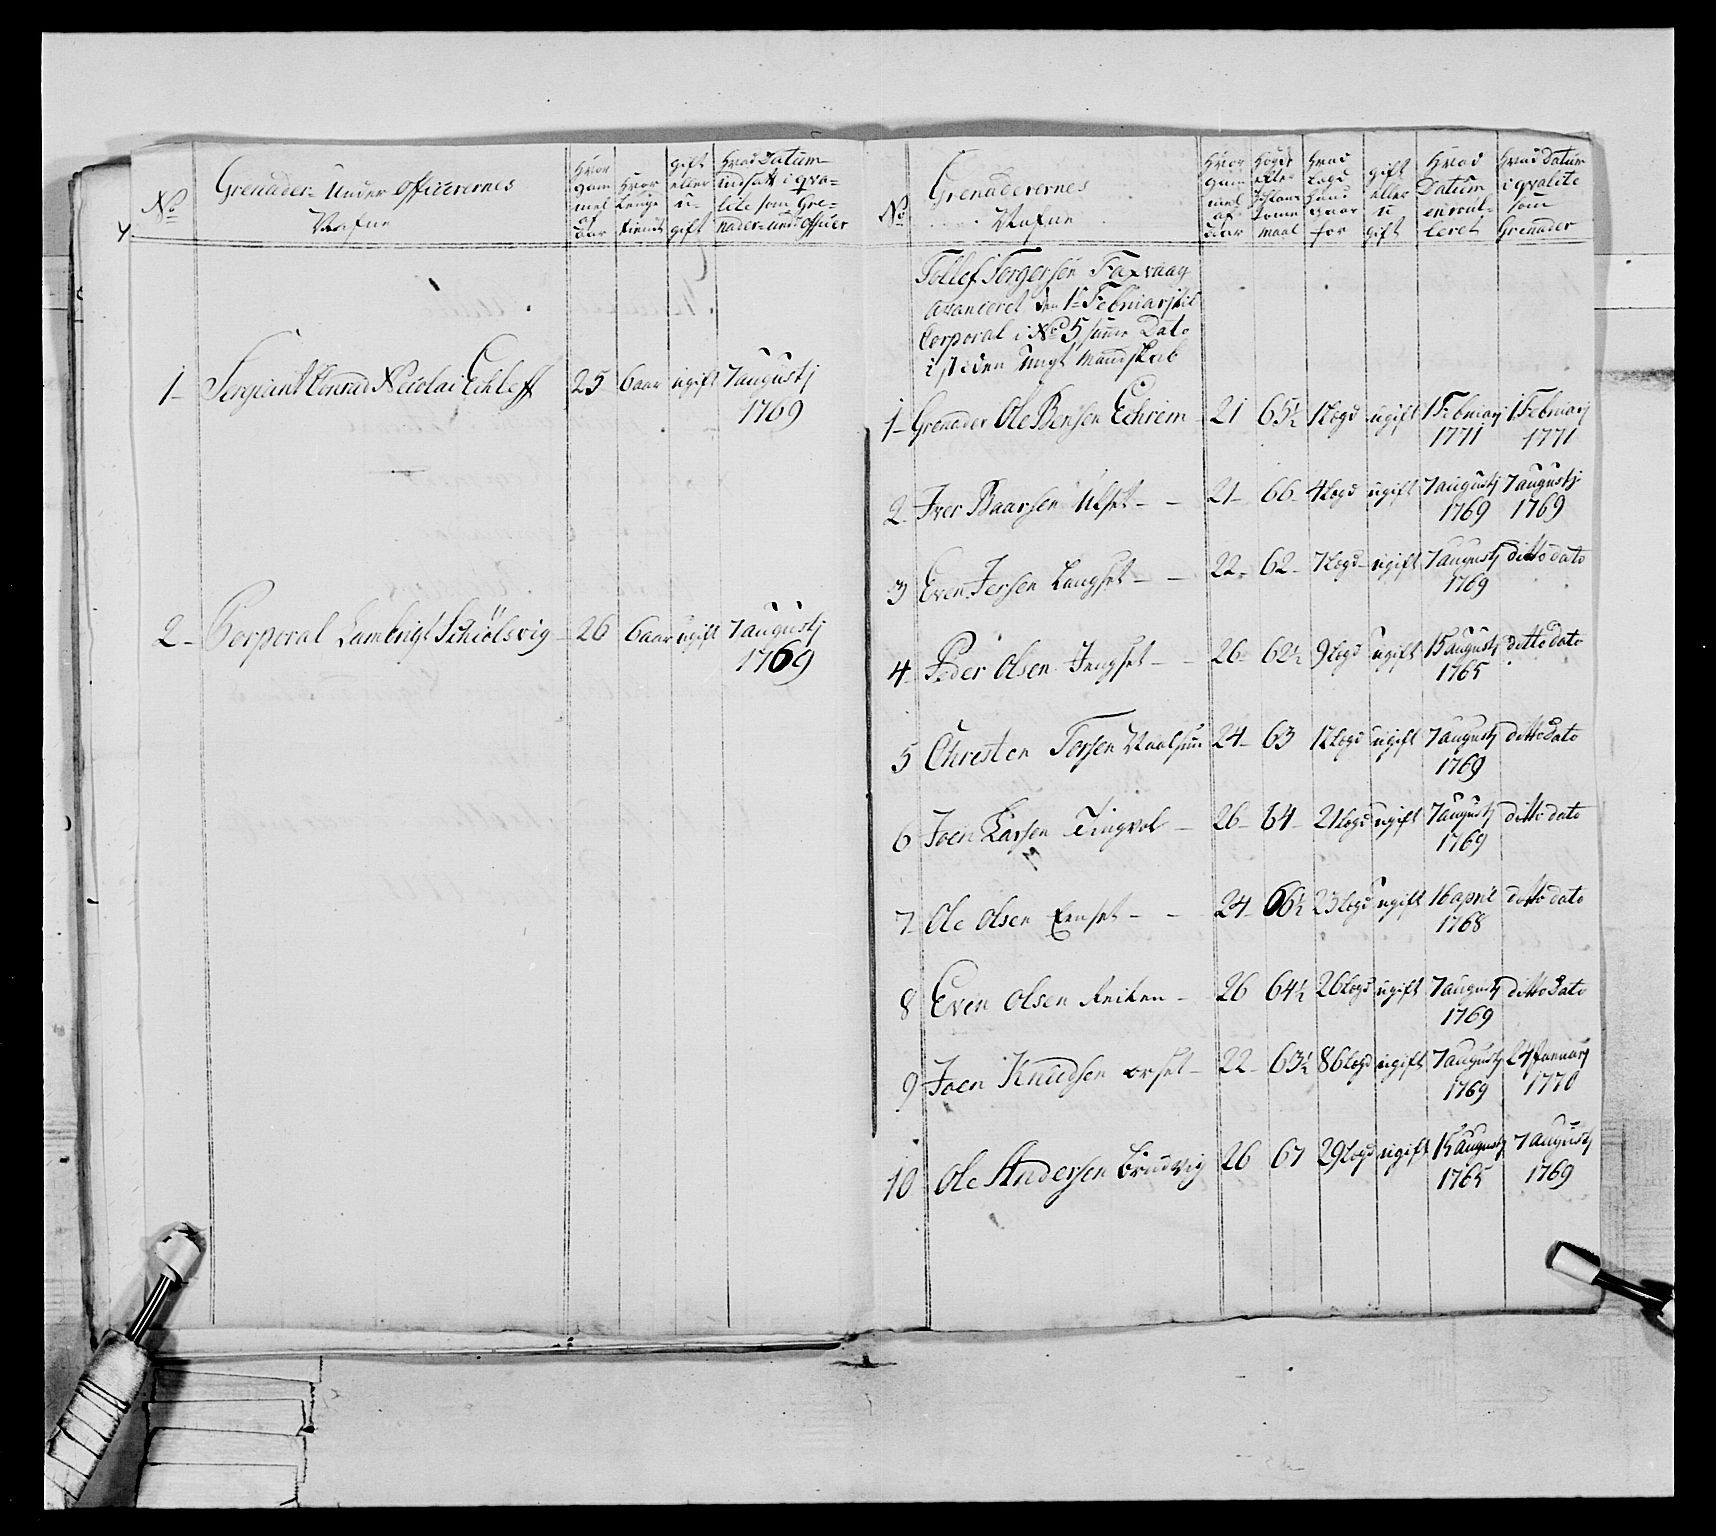 No
Grenader- Under Officerernes
Nafne
Hvor gam mel af aar
Hvor Længe tient
gift eller u- gift
Hvad Datum indsatt i qva- litè som Gre- nader-und Officer
1- Sergeant Conrad Nicolai Eckleff 25 6 aar ugift 7 augustj
1769
2- Corporal Lambrigt Schiölsvig 26 6 aar ugift 7 augustj
1769
No
Grenaderernes
Nafne
Hvor gam mel af aar
Høyde efter
maal
Hvad Legd hand staar for
gift eller u gift
Hvad Datum enroul- leret
Hvad Datum i qvalite som Grenader
Tollef Torgersen Foxvaag
avanceret den 1te Februarj til
Corporal i No 5 samme Dato
i steden Nyt Mandskab
1- Grenader Ole Bensen Echrem 21 65½ 1 Legd ugift 1 Februarj 1 Februarj
1771 1771
2- Iver Baarsen Ulset - - 21- 66- 4 Legd ugift 7 augustj 7 augustj
1769 1769
3 Even Jersen Langset - - 22- 62- 7 Legd- ugift 7 augustj ditto dato
1769
4- Peder Olsen Jengset - - 26- 62½ 9 Legd ugift 15 augustj ditto dato
1765
5 Christen Torsen 24- 63 12 Legd ugift 7 augustj ditto Dato
1769
6 Joen Larsen Tingvol - 26- 64- 21 Legd ugift 7 augustj ditto dato
1769
7- Ole Olsen Eenset - - 24- 66½ 23 Legd ugift 16 april ditto dato
1768
8 Even Olsen Reiten - 26 64½ 26 Legd ugift 7 augustj ditto Dato
1769
9 Joen Knudsen Orset - 22- 63½ 86 Legd ugift 7 augustj 24 Januarj
1769 1770
10 Ole Andersen Brudvig 26 67 29 Legd ugift 15 augustj 7 augustj
1765 1769